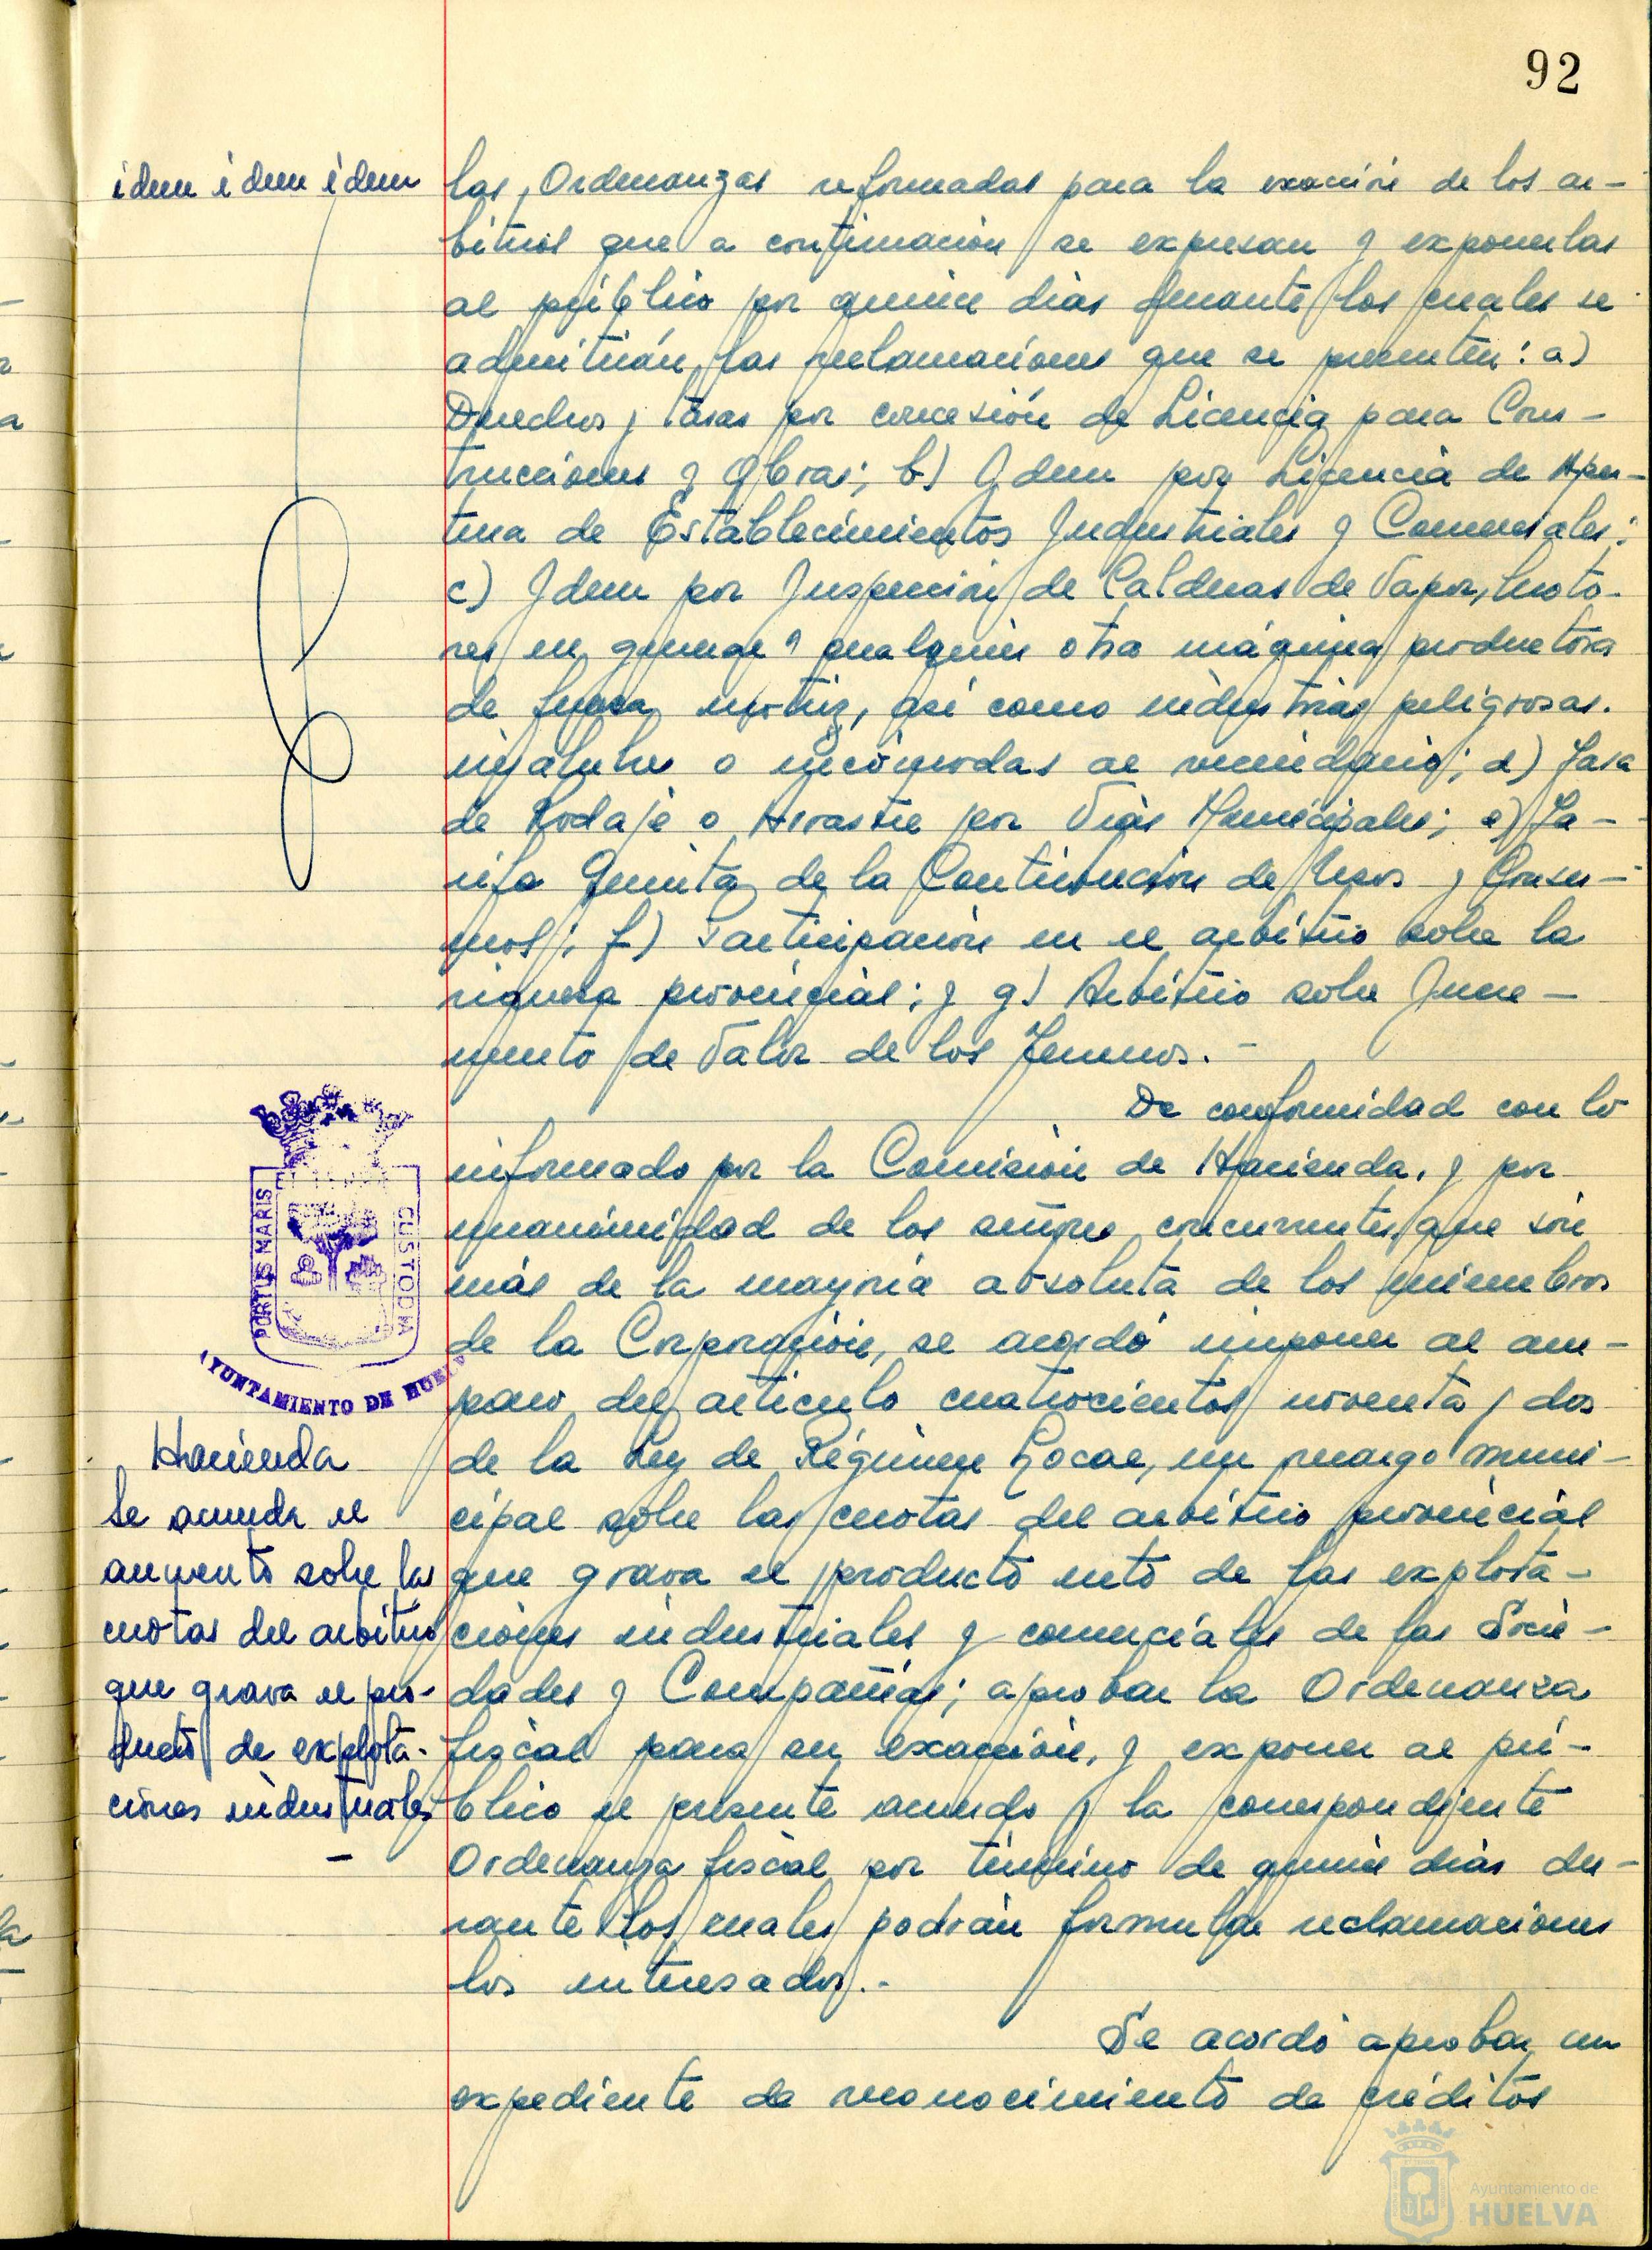 92
idem idem idem
las, Ordenanzas reformadas para la exacción de los ar-
bitrios que a continuación se expresan y exponerlas
al público por quince dias durante los cuales se
admitirán las reclamaciones que se presenten: a)
Derechos y tasas por concesión de Licencia para Cons-
trucciones y Obras; b) Idem por Licencia de Aper-
tura de Establecimientos Industriales y Comerciales;
c) Idem por Inspección de Calderas de Vapor, Moto-
res en general y cualquier otra máquina productora
de fuerza motriz, así como industrias peligrosas.
insalubres o incómodas al vecindario; d) Tasa
de Rodaje o Arrastre por Vías Municipales; e) Ta-
rifa Quinta de la Contribución de Usos y Consu-
mos; f) Participación en el arbitrio sobre la
riqueza provincial; y g) Arbitrio sobre Incre-
mento de Valor de los Terrenos.-
De conformidad con lo
informado por la Comisión de Hacienda, y por
unanimidad de los señores concurrentes, que son
más de la mayoría absoluta de los miembros
de la Corporación, se acordó imponer al am-
paro del artículo cuatrocientos noventa y dos
de la Ley de Régimen Local, un recargo muni-
cipal sobre las cuotas del arbitrio provincial
que grava el producto neto de las explota-
ciones industriales y comerciales de las Socie-
dades y Compañías; aprobar la Ordenanza
fiscal para su exacción, y exponer al pú-
blico el presente acuerdo y la correspondiente
Ordenanza fiscal por término de quince dias du-
rante los cuales podrán formular reclamaciones
los interesados.-
Se acordó aprobar un
expediente de reconocimiento de créditos
PORTUS MARIS
CUSTODIA
AYUNTAMIENTO DE HUELV
Hacienda
Se acuerda el
aumento sobre las
cuotas del arbitrio
que grava el pro-
ducto de explota-
ciones industriales
-
Ayuntamiento de
HUELVA